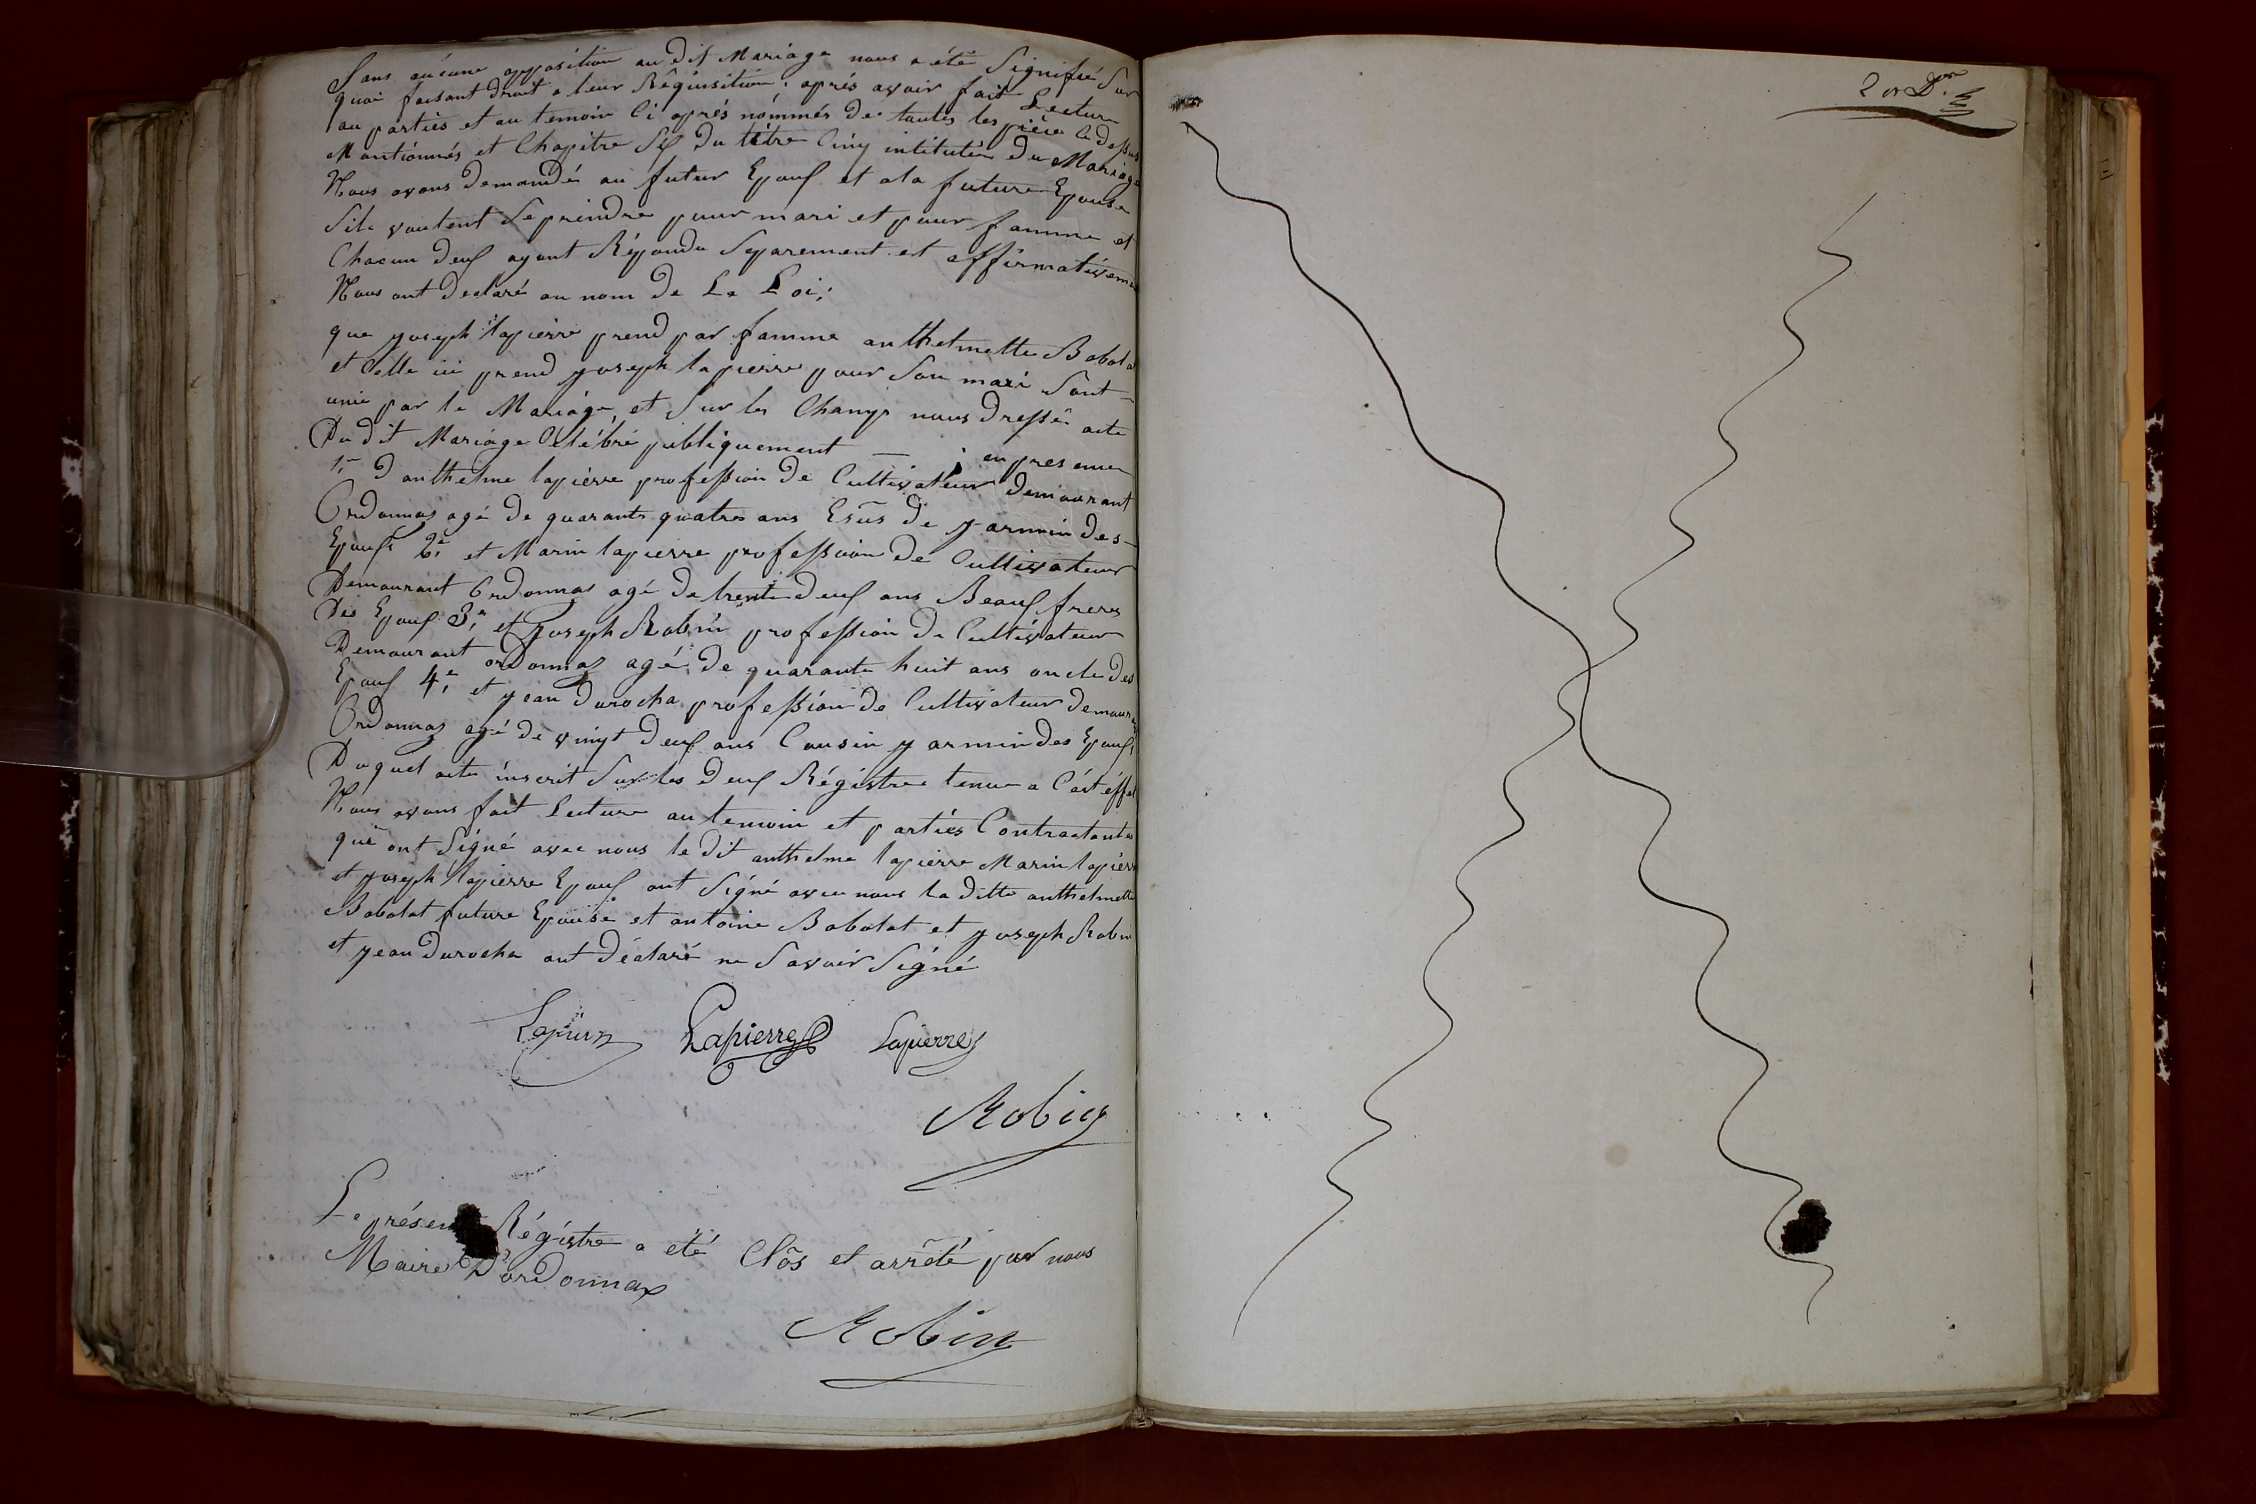 Sans aucune opposition au dit Mariage nous a été Signifié Sur
quoi faisant droit a leur Réquisition, aprés avoir fait Lecture
au parties et au temoin Ci aprés nommés de toutes les piéce Ci dessus
Mantionnés et Chapitre Six du titre Cinq intitulée du Mariage
Nous avons Demandé au futur Epoux et a la future Epouse
Sils voulent Se prendre pour mari et pour famme et
Chacun deux ayant Répondu Separement et affirmativeme
Nous ont declaré au nom de La Loi;
que joseph lapierre prend par famme anthelmette Bobolat
et Celle ici prend joseph lapierre pour Son mari Sont
unie par le Mariage, et Sur les Champs nous dressé acte
Du dit Mariage Célébré publiquement — en presence
1.er Danthelme lapierre profession de Cultivateur demourant
Ordonnaz agé de quarante quatre ans de germin des
Epoux 2.e et Marin lapierre profession de Cultivateur
Demourant Ordonnaz agé de trente deux ans Beaux freres
Des Epoux 3.e et joseph Robin profession de Cultivateur
Demourant ordonnaz agé de quarante huit ans oncle des
Epoux 4.e et jean durocha profession de Cultivateur demour
Ordonnaz agé de vingt deux ans Cousin germin des Epoux
Duquel acte inscrit Sur les deux Régistre tenue a Cét éffet
Nous avons fait Lecture au temoin et parties Contractantes
qui ont Signé avec nous le dit anthelme lapierre Marin lapierre
et joseph lapierre Epoux ont Signé avec nous la ditte anthelmette
Bobolat future Epouse et antoine Bobolat et joseph Robin
et jean durocha ont déclaré ne Savoir Signé
Lapierre Lapierre Lapierre
Robin
Le présent Régistre a été Clôs et arrêté par nous
Maire D'ordonnax
Robin